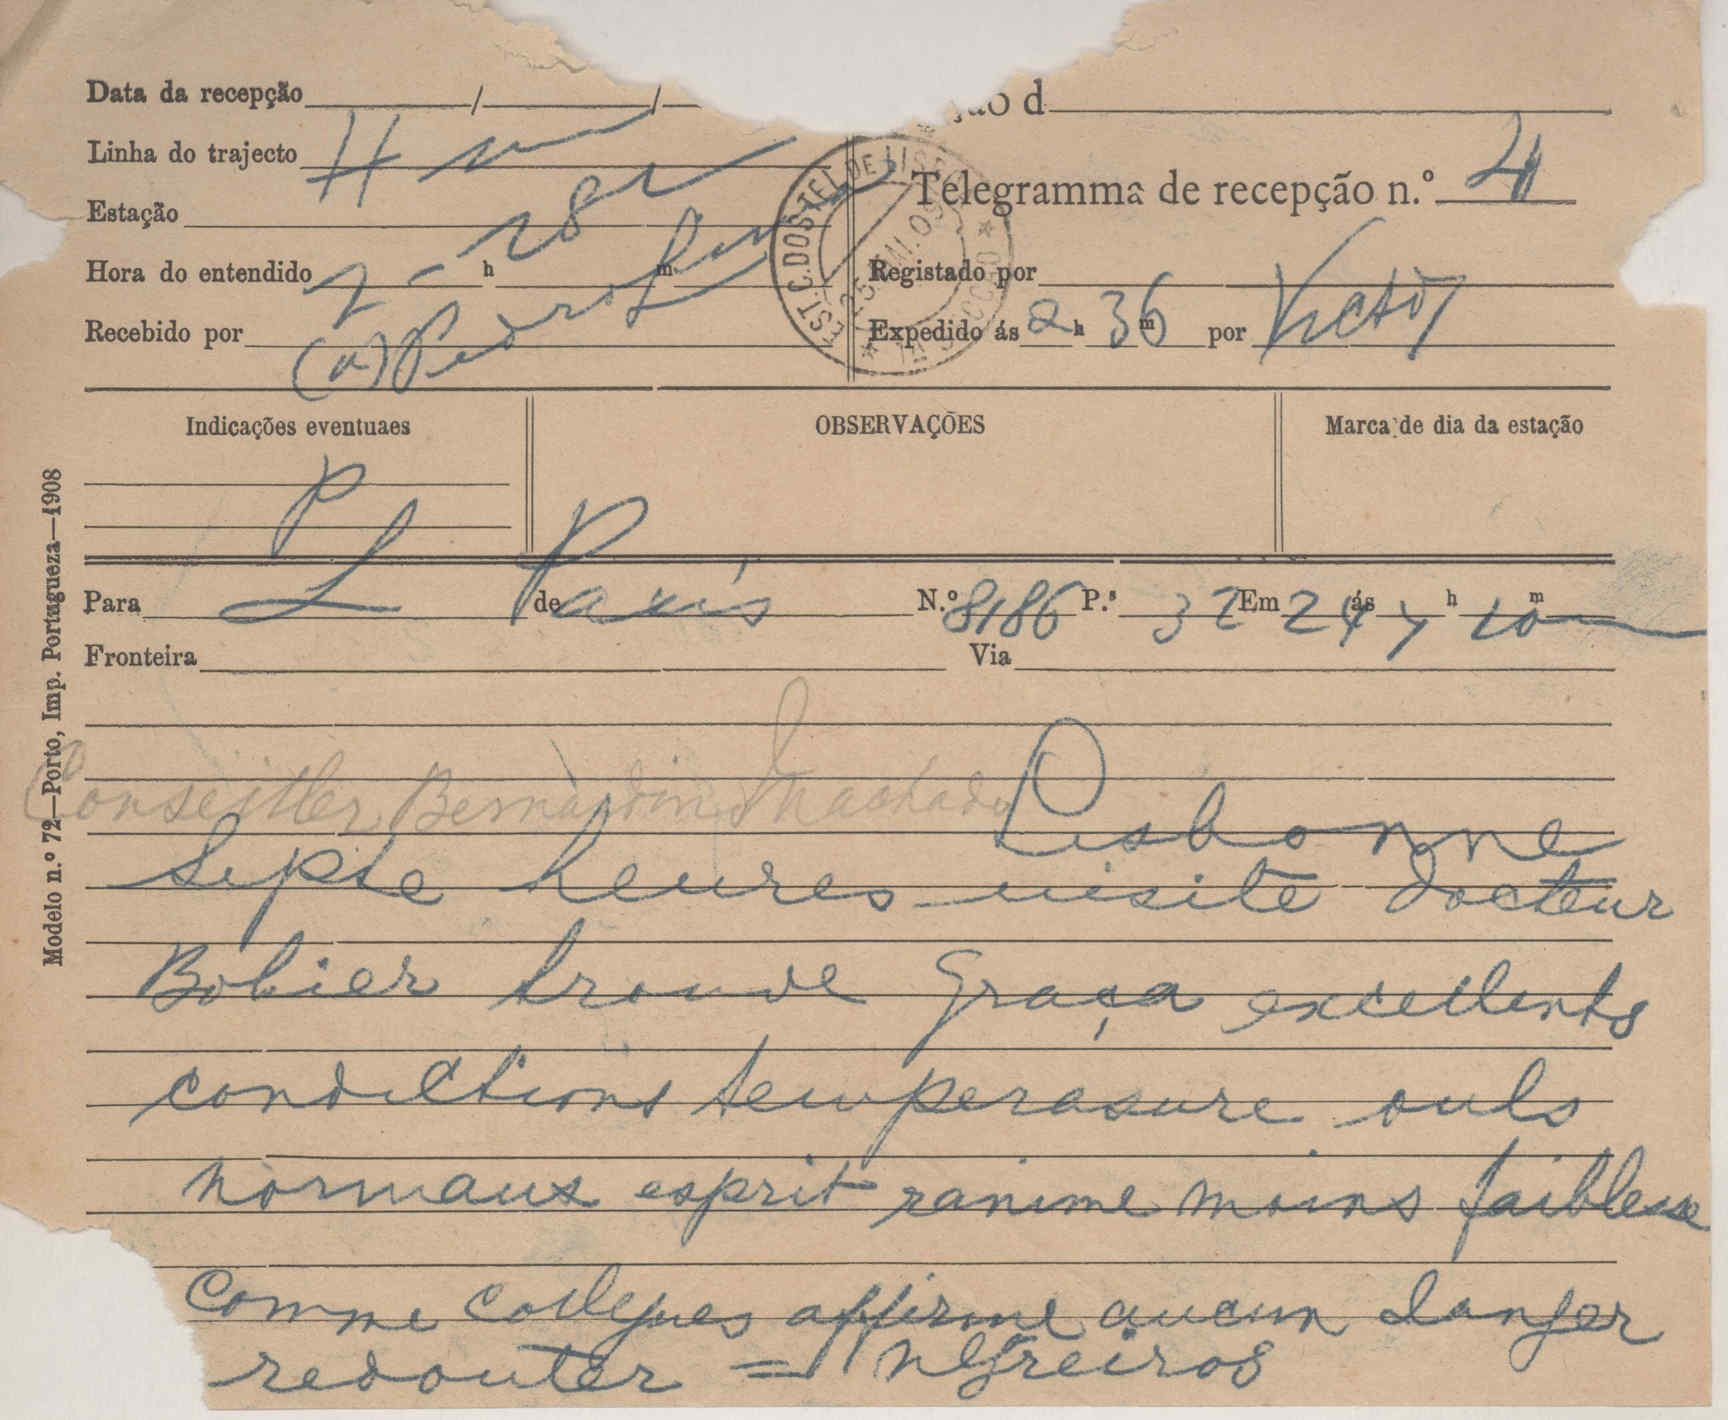 Data da recepção / /
ção d
Linha do trajecto
Telegramma de recepção n.º
Estação
Hora do entendido h m
Registado por
Recebido por (a) Pedro
Expedido ás 2 h 36 m por Victor
EST. C. DOS TEL. DE LISBOA
Indicações eventuaes
OBSERVAÇÕES
Marca de dia da estação
P
Para L de Paris N.º 8186 P.ª 32 Em 24 ás 7 h 10 m
Fronteira Via
Conseitler Bernardino Machado
Lisbonne
Septe heures visite docteur
Bobier trouve Graça excellents
condittions temperasure ouls
normaux esprit ranime moins faiblesse
comme collegues affirme aucun danger
redouter = Negreiros
Modelo n.º 72—Porto, Imp. Portugueza—1908